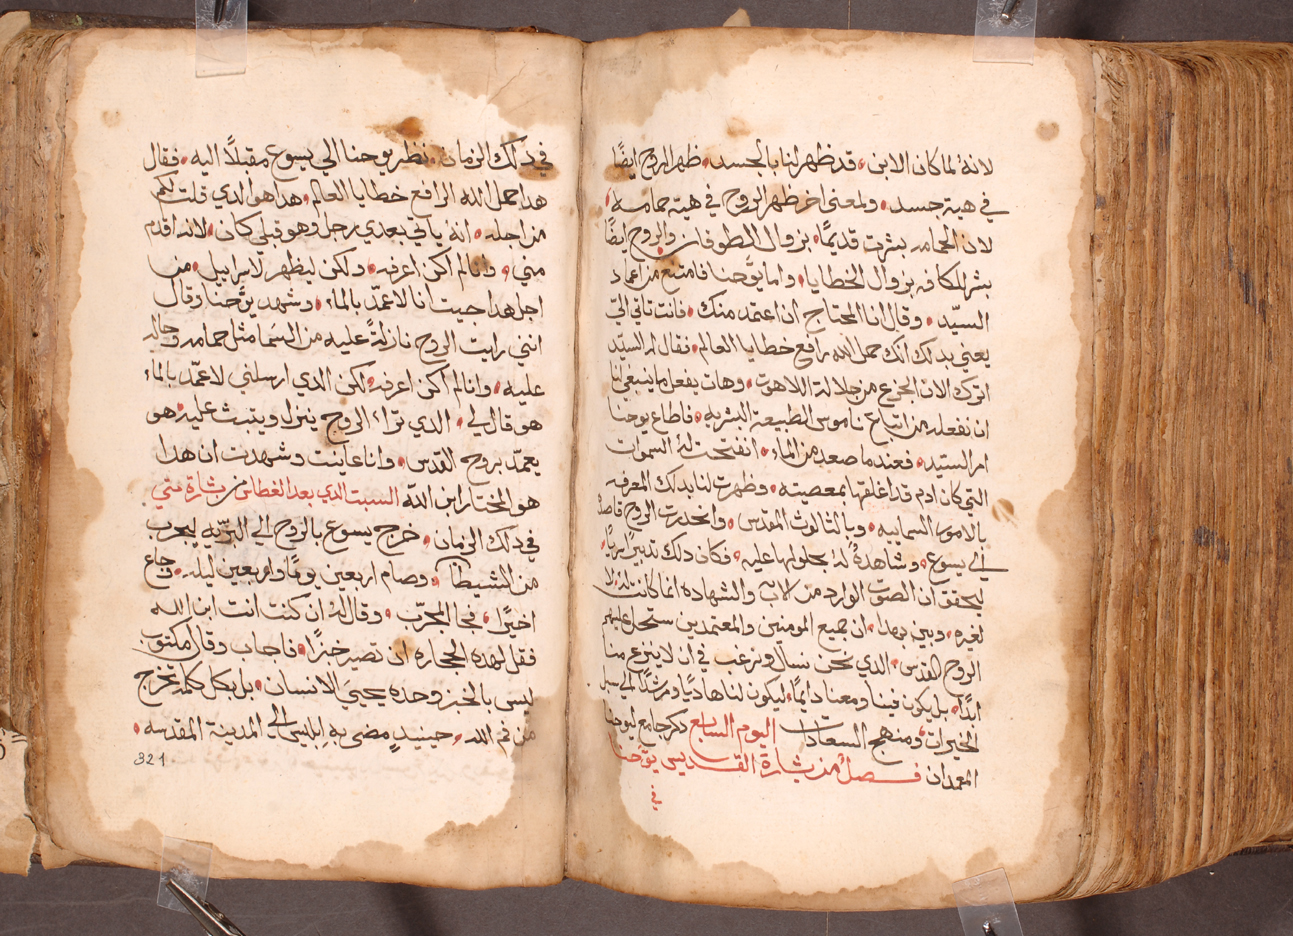 لانهُ لما كان الابن، قد ظهر لنا بالجسد، ظهر الروح ايضًا
في هية جسد، ولمعنى اخر ظهر الروح في هية حمامه،
لان الحمامه بشرت قديمًا، بزوال الطوفان والروح ايضًا
بشر للكافه بزوال الخطايا، واما يوحنا فامتنع من اعماد
السيّد، وقال انا المحتاج ان اعتمد منك، فانت تاتي اليّ
يعني بدلك انك حمل الله رافع خطايا العالم، فقال له السيّد
اترك الان الجزع من جلالة اللاهوت، وهات يفعل ما ينبغي لنا
ان نفعله من اتباع ناموس الطبيعة البشريه، فاطاع يوحنا
امر السيّد، فعندما صعد من الماء، انفتحت لهُ السموات
التي كان ادم قد اغلقها بمعصيته، وظهرت لنا بدلك المعرفه
بالامور السمايية، وبالثالوث المقدس، وانحدرت الروح قاصدهُ
الي يسوع، وشاهدهُ لهُ بحلولها عليه، فكان دلك تدبيرًا
ليحقق ان الصوت الوارد من الاب والشهاده انما كانت لهُ لا
لغيره، وبيّن بهدا، ان جميع المومنين والمعتمدين ستحل عليهم
الروح القدس، الدي نحن نسال ونرغب في ان لا ينزع منا
ابدًا، بل يكون فينا ومعنا دايمًا، ليكون لنا هاديًا ومرشدًا الي سبل
الخيرات، ومنهج السعادات اليوم السابع دكر جامع ليوحنا
المعمدان فصل من بشارة القديس يوحنا
في
في دلك الزمان، نظر يوحنا الي يسوع مقبلًا اليه، فقال
هدا حمل الله الرافع خطايا العالم، هدا هو الدي قلت لكم
من اجله، انه ياتي بعدي رجل وهو قبلي كان، لانه اقدم
مني، وانا لم اكن اعرفه، ولكن ليظهر لاسرابيل، من
اجل هدا جيت انا لاعمّد بالماء، وشهد يوحنا وقال
انني رايت الروح نازلةً عليه من السَما مثل حمامه وحاله
عليه، وانا لم اكن اعرفه، لكن الدي ارسلني لاعمّد بالماء
هو قال لي، الدي تراء الروح ينزل ويثبت عليه، هو
يعمّد بروح القدس، وانا عاينت وشهدت ان هدا
هو المختار ابن اللّه السبت الدي بعد الغطاس من بشارة متي
في دلك الزمان، خرج يسوع بالروح الي البرّيه ليجرب
من الشيطان، وصام اربعين يومًا واربعين ليله، وجاع
اخيرًا، فجا المجرّب، وقال لهُ ان كنت انت ابن الله
فقل لهده الحجاره ان تصير خبزًا، فاجاب وقال مكتوب
ليس بالخبز وحده يحييَ الانسان، بل بكل كلمة تخرج
من فم الله، حينيدٍ مضى بهِ ابليس الي المدينة المقدسه،
321